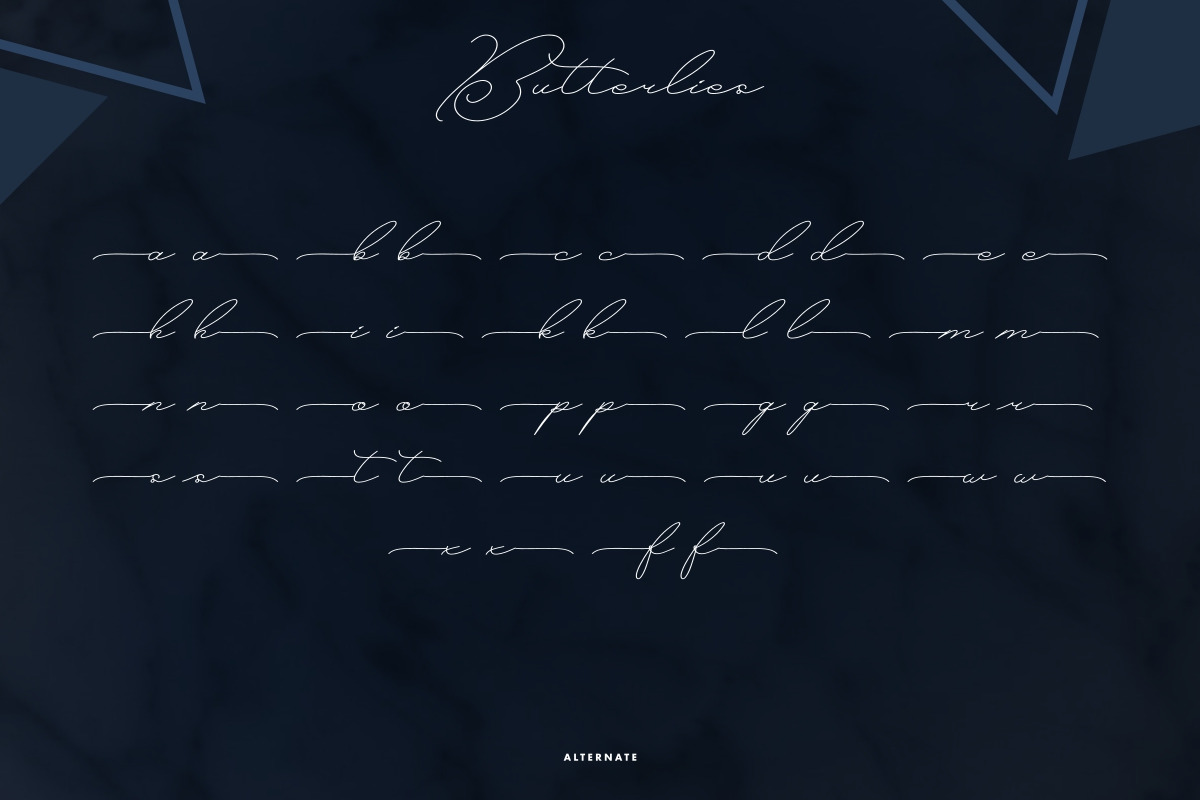 Butterlies
a a b b c c d d e e
h h i i k k l l m m
n n o o p p g g r r
s s t t u u u u w w
x x f f
ALTERNATE